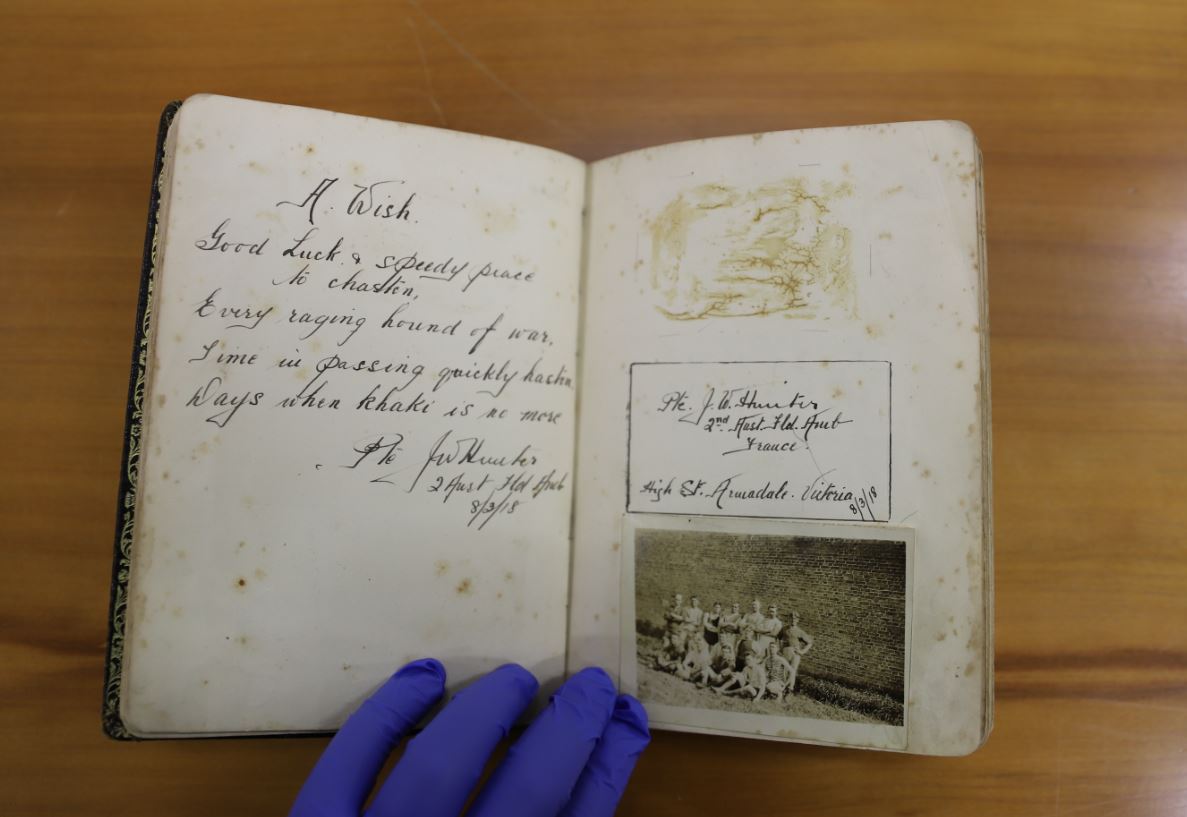 A. Wish.
Good Luck & speedy peace
to chasten,
Every raging hound of war.
Time in passing quickly hasten
Days when khaki is no more
Pte JWHunter
2 Aust Fld Amb
8/3/18
Pte. J. W. Hunter
2nd Aust. Fld. Amb
France.
High St. Armadale. Victoria
8/3/18